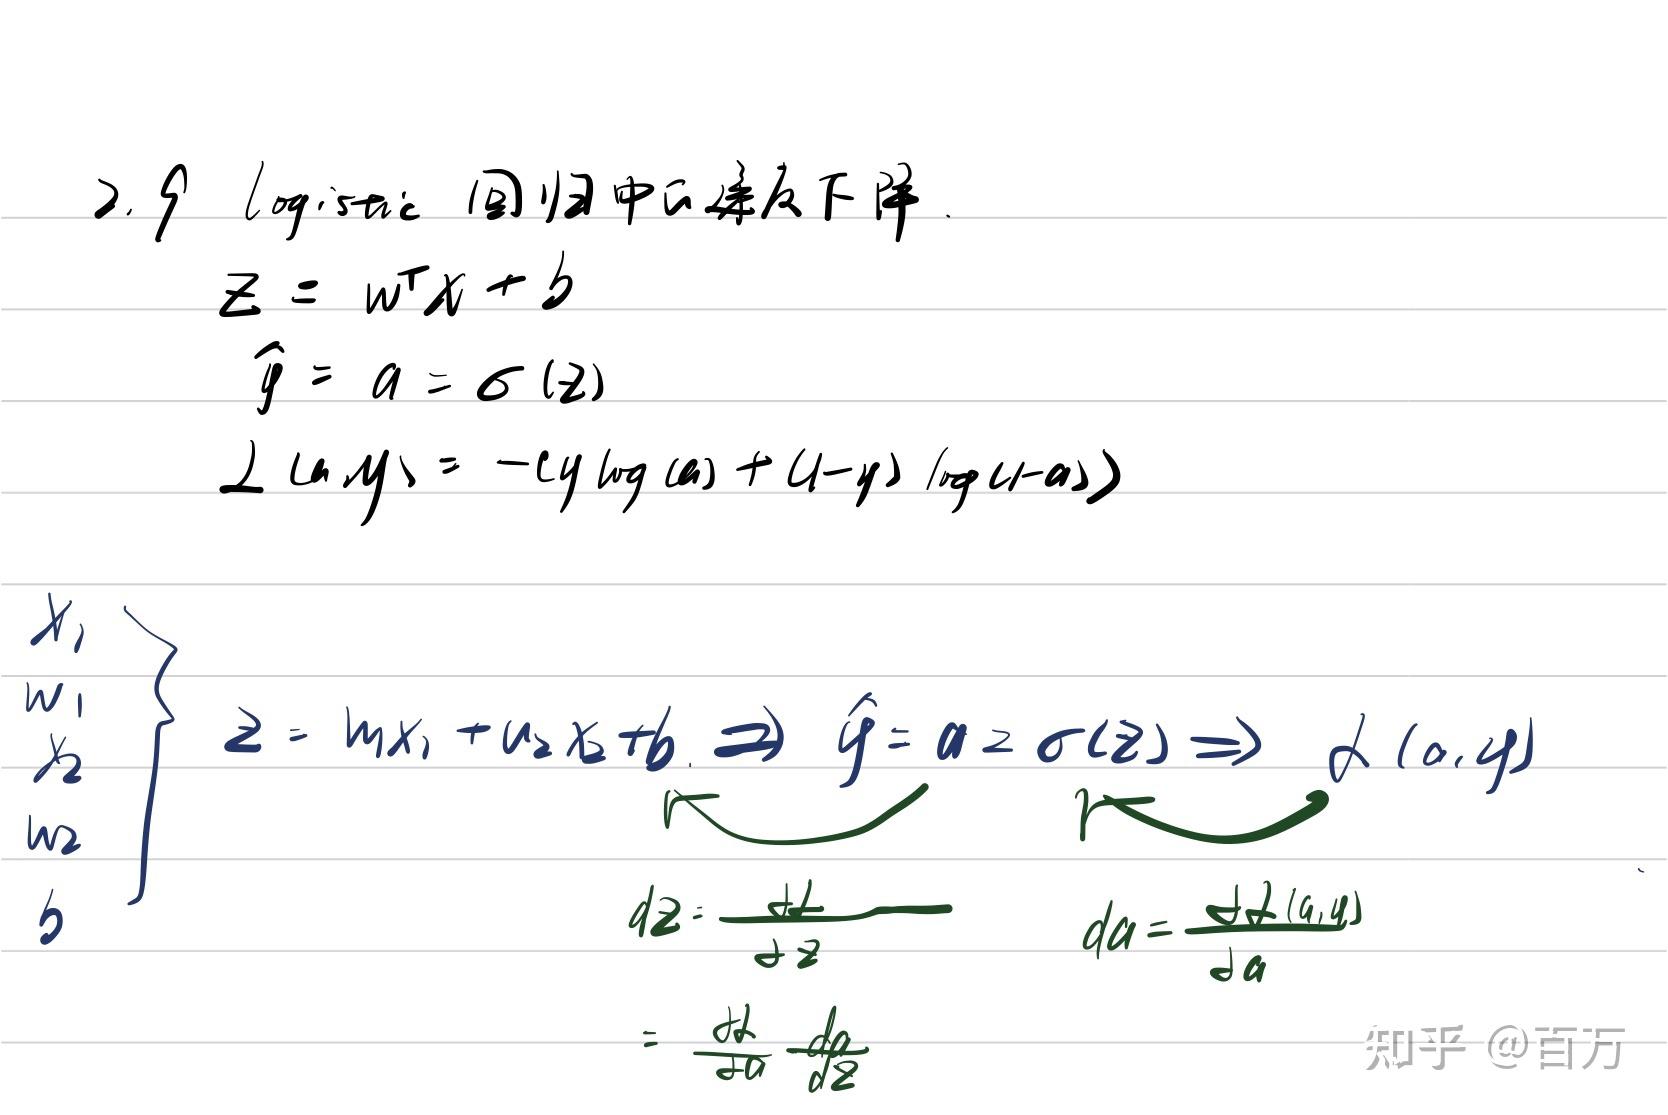 2.9 logistic 回归中的梯度下降.
z = wᵀx + b
ŷ = a = σ(z)
L(a,y) = -(y log(a) + (1-y) log(1-a))
x₁
w₁
x₂
w₂
b
z = w₁x₁ + w₂x₂ + b. ⇒ ŷ = a = σ(z) ⇒ L(a,y)
dz = dL/dz da = dL(a,y)/da
= dL/da da/dz
知乎 @百万